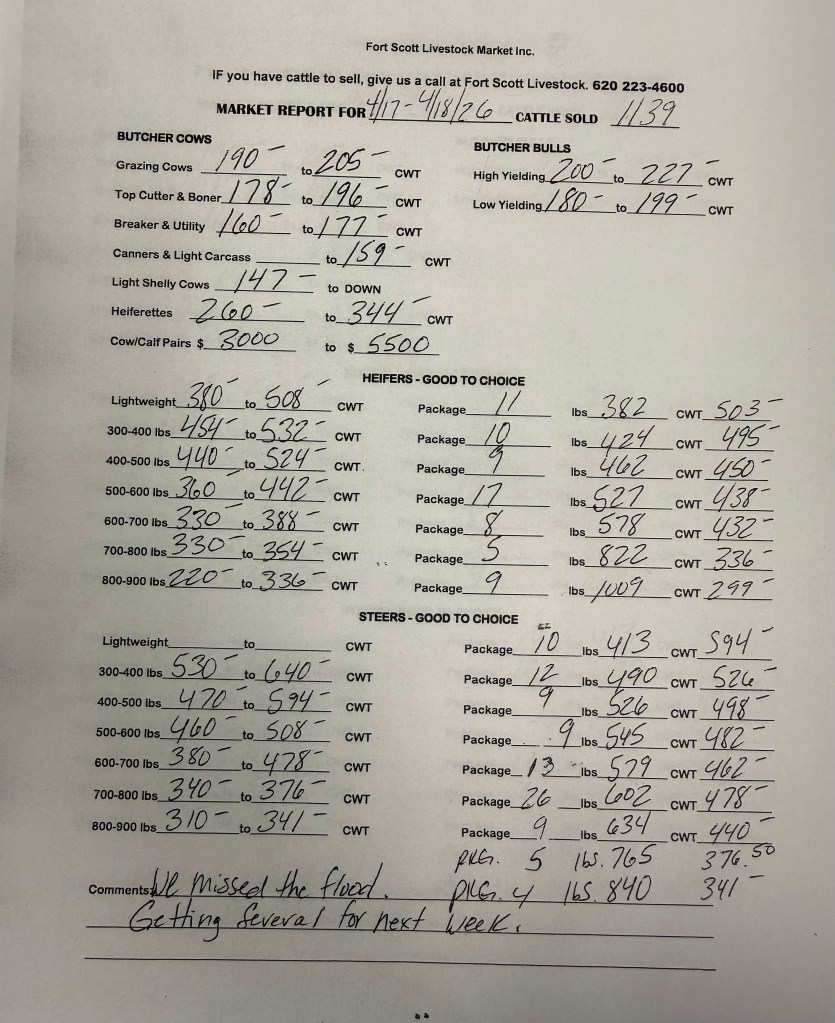 Fort Scott Livestock Market Inc.
IF you have cattle to sell, give us a call at Fort Scott Livestock. 620 223-4600
MARKET REPORT FOR 4/17-4/18/26 CATTLE SOLD 1139
BUTCHER COWS
BUTCHER BULLS
Grazing Cows 190- to 205- CWT High Yielding 200- to 227- CWT
Top Cutter & Boner 178- to 196- CWT Low Yielding 180- to 199- CWT
Breaker & Utility 160- to 177- CWT
Canners & Light Carcass to 159- CWT
Light Shelly Cows 147- to DOWN
Heiferettes 260- to 344- CWT
Cow/Calf Pairs $ 3000 to $ 5500
HEIFERS - GOOD TO CHOICE
Lightweight 380- to 508- CWT Package 11 lbs 382 CWT 503-
300-400 lbs 454- to 532- CWT Package 10 lbs 424 CWT 495-
400-500 lbs 440- to 524- CWT. Package 9 lbs 462 CWT 450-
500-600 lbs 360- to 442- CWT Package 17 lbs 527 CWT 438-
600-700 lbs 330- to 388- CWT Package 8 lbs 578 CWT 432-
700-800 lbs 330- to 354- CWT Package 5 lbs 822 CWT 336-
800-900 lbs 220- to 336- CWT Package 9 lbs 1009 CWT 299-
STEERS - GOOD TO CHOICE
Lightweight to CWT Package 10 lbs 413 CWT 594-
300-400 lbs 530- to 640- CWT Package 12 lbs 490 CWT 526-
400-500 lbs 470- to 594- CWT Package 9 lbs 526 CWT 498-
500-600 lbs 460- to 508- CWT Package 9 lbs 545 CWT 482-
600-700 lbs 380- to 478- CWT Package 13 lbs 579 CWT 462-
700-800 lbs 340- to 376- CWT Package 26 lbs 602 CWT 478-
800-900 lbs 310- to 341- CWT Package 9 lbs 634 CWT 440-
PKG. 5 lbs. 765 376.50
Comments: We missed the flood. PKG. 4 lbs. 840 341-
Getting several for next week.